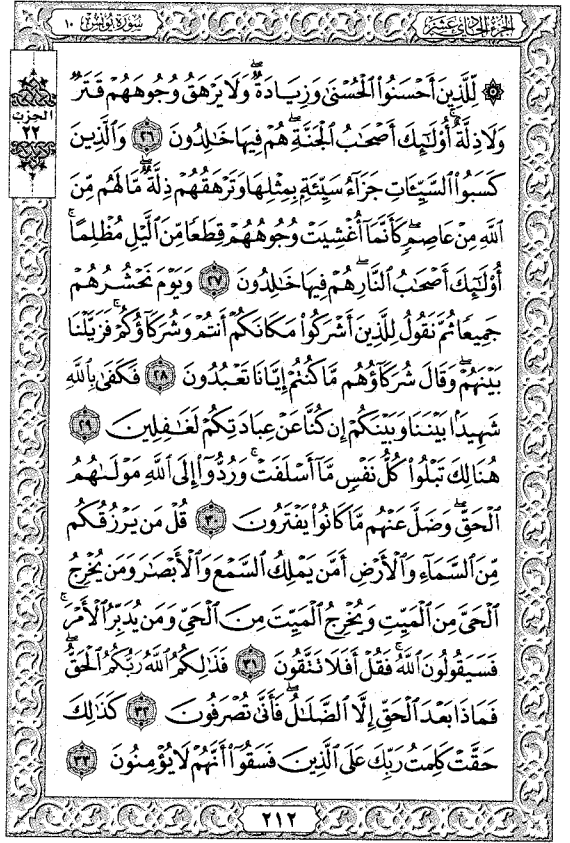 سُورَةُ يُونُسَ ١٠
الجُزْءُ الحَادِي عَشَرَ
الحِزْبُ
٢٢
۞ لِّلَّذِينَ أَحۡسَنُواْ ٱلۡحُسۡنَىٰ وَزِيَادَةٞۖ وَلَا يَرۡهَقُ وُجُوهَهُمۡ قَتَرٞ
وَلَا ذِلَّةٌۚ أُوْلَٰٓئِكَ أَصۡحَٰبُ ٱلۡجَنَّةِۖ هُمۡ فِيهَا خَٰلِدُونَ ٢٦ وَٱلَّذِينَ
كَسَبُواْ ٱلسَّيِّـَٔاتِ جَزَآءُ سَيِّئَةِۭ بِمِثۡلِهَا وَتَرۡهَقُهُمۡ ذِلَّةٞۖ مَّا لَهُم مِّنَ
ٱللَّهِ مِنۡ عَاصِمٖۖ كَأَنَّمَآ أُغۡشِيَتۡ وُجُوهُهُمۡ قِطَعٗا مِّنَ ٱلَّيۡلِ مُظۡلِمًاۚ
أُوْلَٰٓئِكَ أَصۡحَٰبُ ٱلنَّارِۖ هُمۡ فِيهَا خَٰلِدُونَ ٢٧ وَيَوۡمَ نَحۡشُرُهُمۡ
جَمِيعٗا ثُمَّ نَقُولُ لِلَّذِينَ أَشۡرَكُواْ مَكَانَكُمۡ أَنتُمۡ وَشُرَكَآؤُكُمۡۚ فَزَيَّلۡنَا
بَيۡنَهُمۡۖ وَقَالَ شُرَكَآؤُهُم مَّا كُنتُمۡ إِيَّانَا تَعۡبُدُونَ ٢٨ فَكَفَىٰ بِٱللَّهِ
شَهِيدَۢا بَيۡنَنَا وَبَيۡنَكُمۡ إِن كُنَّا عَنۡ عِبَادَتِكُمۡ لَغَٰفِلِينَ ٢٩
هُنَالِكَ تَبۡلُواْ كُلُّ نَفۡسٖ مَّآ أَسۡلَفَتۡۚ وَرُدُّوٓاْ إِلَى ٱللَّهِ مَوۡلَىٰهُمُ
ٱلۡحَقِّۖ وَضَلَّ عَنۡهُم مَّا كَانُواْ يَفۡتَرُونَ ٣٠ قُلۡ مَن يَرۡزُقُكُم
مِّنَ ٱلسَّمَآءِ وَٱلۡأَرۡضِ أَمَّن يَمۡلِكُ ٱلسَّمۡعَ وَٱلۡأَبۡصَٰرَ وَمَن يُخۡرِجُ
ٱلۡحَيَّ مِنَ ٱلۡمَيِّتِ وَيُخۡرِجُ ٱلۡمَيِّتَ مِنَ ٱلۡحَيِّ وَمَن يُدَبِّرُ ٱلۡأَمۡرَۚ
فَسَيَقُولُونَ ٱللَّهُۚ فَقُلۡ أَفَلَا تَتَّقُونَ ٣١ فَذَٰلِكُمُ ٱللَّهُ رَبُّكُمُ ٱلۡحَقُّۖ
فَمَاذَا بَعۡدَ ٱلۡحَقِّ إِلَّا ٱلضَّلَٰلُۖ فَأَنَّىٰ تُصۡرَفُونَ ٣٢ كَذَٰلِكَ
حَقَّتۡ كَلِمَتُ رَبِّكَ عَلَى ٱلَّذِينَ فَسَقُوٓاْ أَنَّهُمۡ لَا يُؤۡمِنُونَ ٣٣
٢١٢